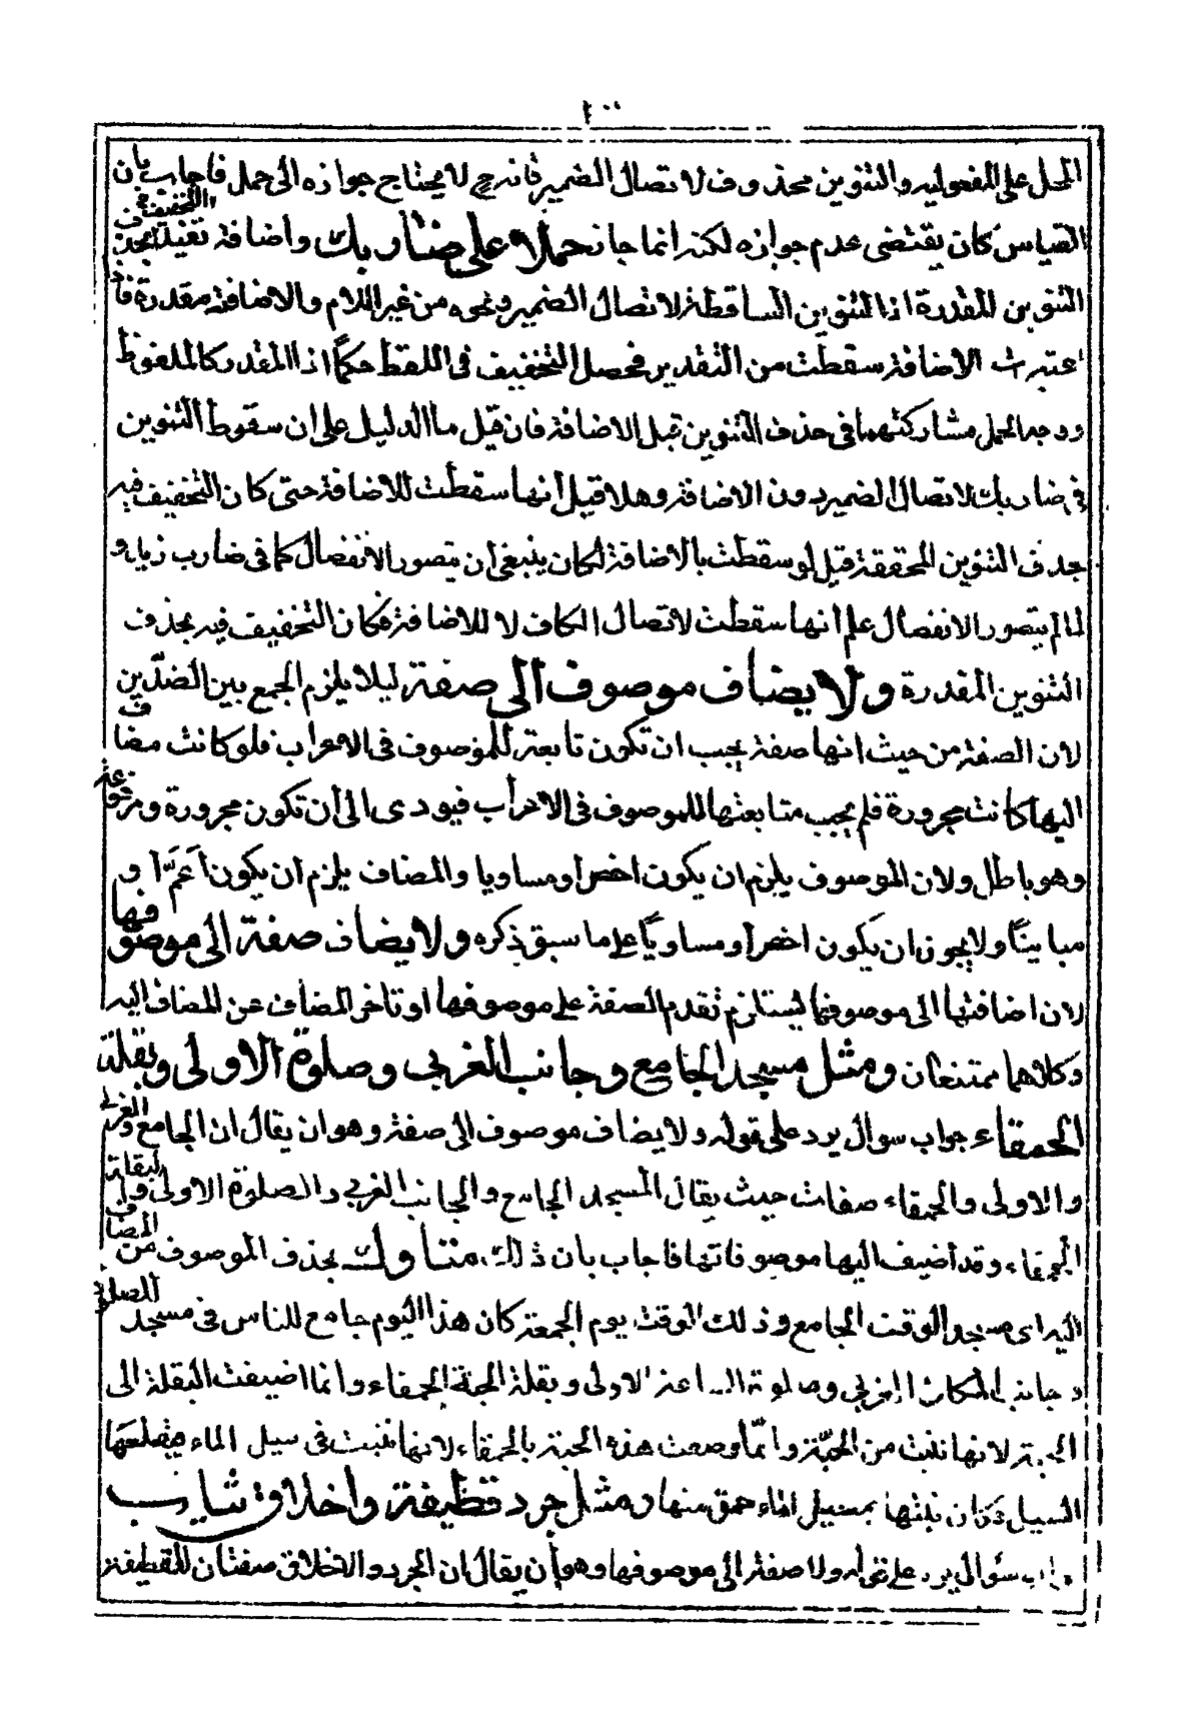 ١٠٠
الحمل على المفعولية والتنوين محذوف لاتصال الضمير فانه ح لا يحتاج جوازه الى حمل فاجاب بان
القياس كان يقتضى عدم جوازه لكنه انما جاز حملا على ضاربك واضافة تفيد التخفيف بحذف
التنوين المقدرة اذ التنوين الساقطة لاتصال الضمير ونحوه من غير اللام والاضافة مقدرة فاذا
اعتبرت الاضافة سقطت من التقدير فحصل التخفيف فى اللفظ حكما اذ المقدر كالملفوظ
ووجه الحمل مشاركتهما فى حذف التنوين قبل الاضافة فان قيل ما الدليل على ان سقوط التنوين
فى ضاربك لاتصال الضمير دون الاضافة وهلا قيل انها سقطت للاضافة حتى كان التخفيف فيه
بحذف التنوين المحققة قيل لو سقطت بالاضافة لكان ينبغى ان يتصور الانفصال كما فى ضارب زيد و
لما لم يتصور الانفصال علم انها سقطت لاتصال الكاف لا للاضافة فكان التخفيف فيه بحذف
التنوين المقدرة ولا يضاف موصوف الى صفة ليلا يلزم الجمع بين الضدّين
لان الصفة من حيث انها صفة يجب ان تكون تابعة للموصوف فى الاعراب فلو كانت مضافا
اليها كانت مجرورة فلم يجب متابعتها للموصوف فى الاعراب فيودى الى ان تكون مجرورة ومرفوعة
وهو باطل ولان الموصوف يلزم ان يكون اخص او مساويا والمضاف يلزم ان يكون اعمّ او
مباينًا ولا يجوز ان يكون اخص او مساويًا على ما سبق ذكره ولا يضاف صفة الى موصوفها
لان اضافتها الى موصوفها يستلزم تقدم الصفة على موصوفها او تاخر المضاف عن المضاف اليه
وكلاهما ممتنعان ومثل مسجد الجامع وجانب الغربى وصلوة الاولى وبقلة
الحمقاء جواب سوال يرد على قوله ولا يضاف موصوف الى صفة وهو ان يقال ان الجامع والغربى
والاولى والحمقاء صفات حيث يقال المسجد الجامع والجانب الغربى والصلوة الاولى والبقلة
الحمقاء وقد اضيف اليها موصوفاتها فاجاب بان ذلك متاول بحذف الموصوف من المضاف
اليه اى مسجد الوقت الجامع وذلك الوقت يوم الجمعة كان هذا اليوم جامع للناس فى مسجد للصلوة
وجانب المكان الغربى وصلوة الساعة الاولى وبقلة الحبة الحمقاء وانما اضيفت البقلة الى
الحبة لانها نبتت من الحبّة وانّما وصفت هذه الحبة بالحمقاء لانها تنبت فى سيل الماء فيقلعها
السيل فكان نبتها بمسيل الماء حمق منها ومثل جرد قطيفة واخلاق ثياب
جواب سؤال يرد على قوله ولا صفة الى موصوفها وهو ان يقال ان الجرد والاخلاق صفتان للقطيفة